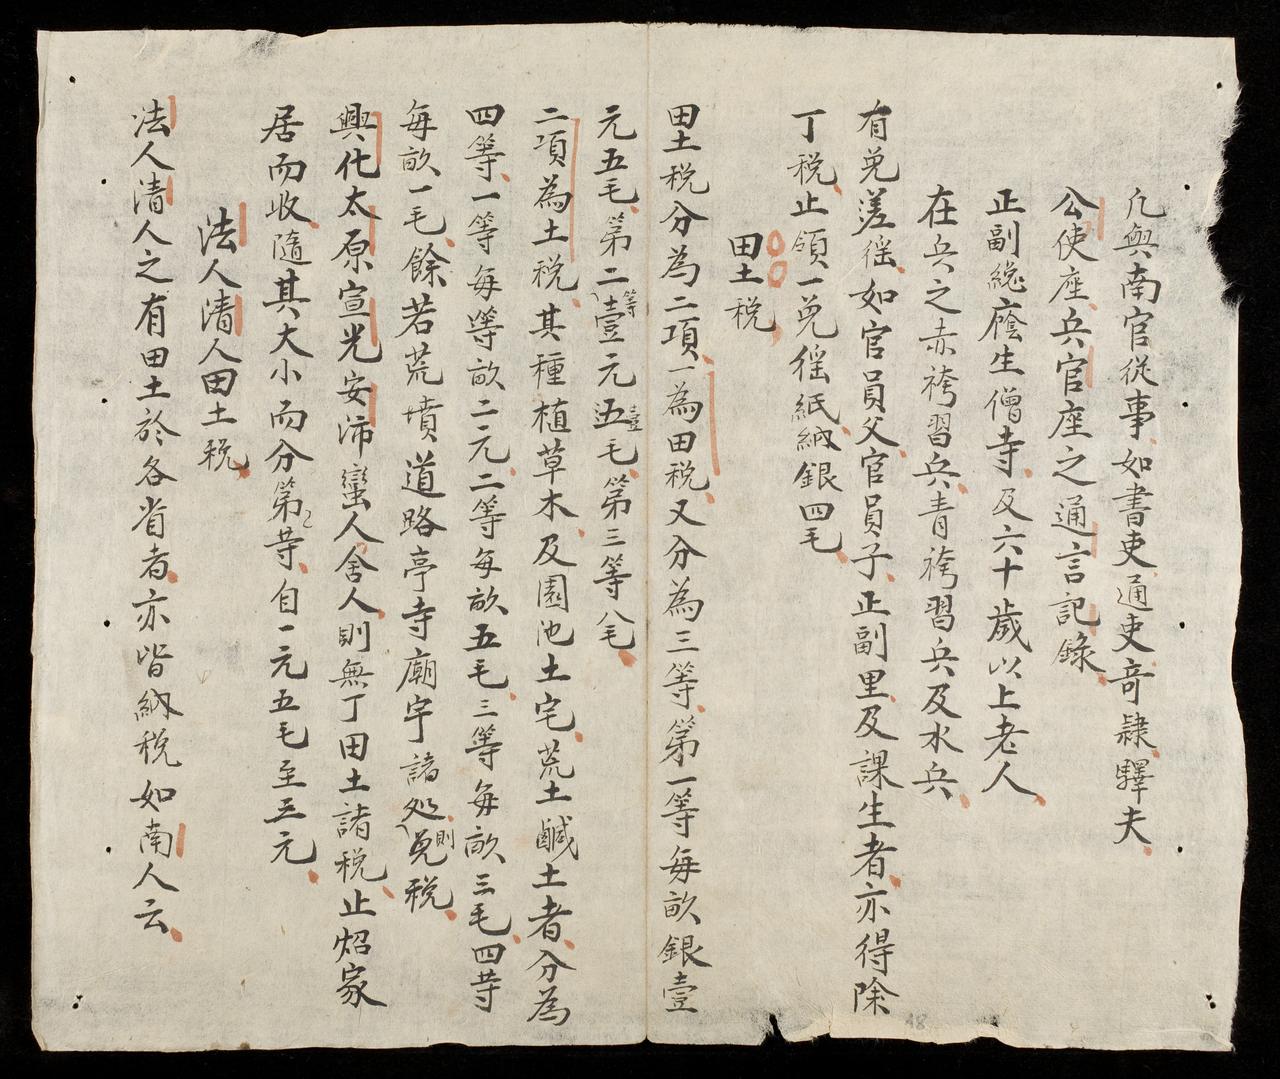 凢與南官從事如書吏通吏竒隷驛夫
公使座兵官座之通言記錄
正副總廕生僧寺及六十歲以上老人
在兵之赤袴習兵青袴習兵及水兵
有免差徭如官員父官員子正副里及課生者亦得除
丁税止領一免徭紙納銀四毛
田土税
田土税分為二項一為田税又分為三等第一等每畝銀壹
元五毛第二等壹元壹毛第三等八毛
二項為土税其種植草木及園池土宅荒土鹹土者分為
四等一等每畝二元二等每畝五毛三等每畝三毛四等
每畝一毛餘若荒墳道路亭寺廟宇諸処則免税
興化太原宣光安沛蠻人舍人則無丁田土諸税止炤家
居而收隨其大小而分第等自一元五毛至三元
法人清人田土税
法人清人之有田土於各省者亦皆納税如南人云
18